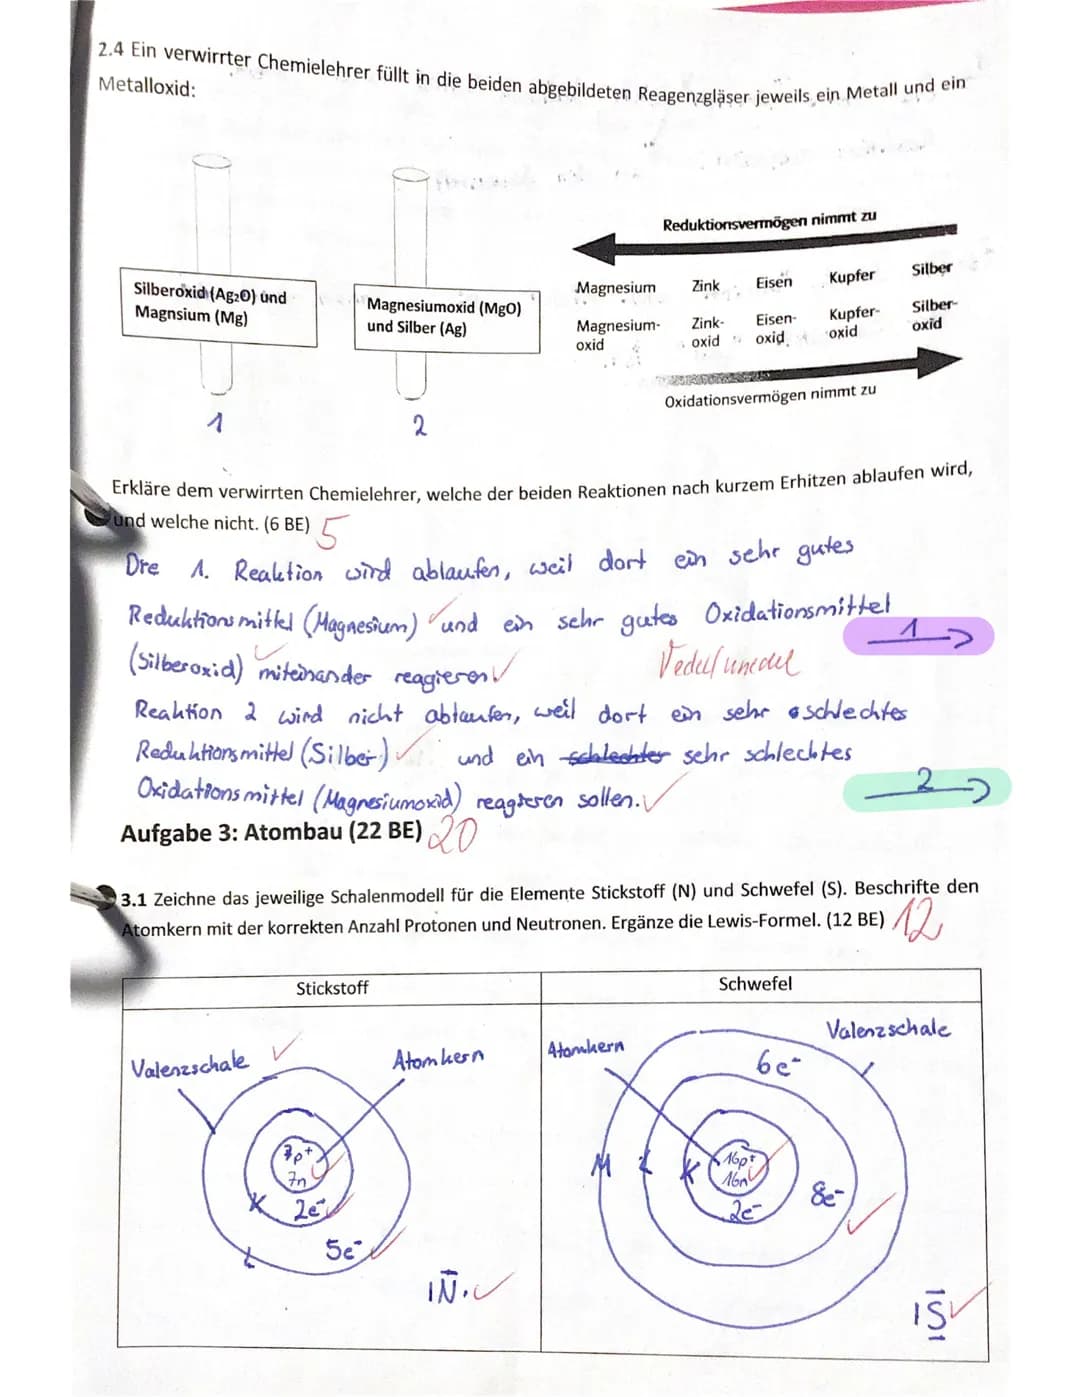 2.4 Ein verwirrter Chemielehrer füllt in die beiden abgebildeten Reagenzgläser jeweils ein Metall und ein
Metalloxid:
Silberoxid (Ag₂O) und
Magnsium (Mg)
1
Magnesiumoxid (MgO)
und Silber (Ag)
2
Reduktionsvermögen nimmt zu
Magnesium Zink Eisen Kupfer Silber
Magnesium-
oxid
Zink-
oxid
Eisen-
oxid
Kupfer-
oxid
Silber-
oxid
Oxidationsvermögen nimmt zu
Erkläre dem verwirrten Chemielehrer, welche der beiden Reaktionen nach kurzem Erhitzen ablaufen wird,
und welche nicht. (6 BE) 5
Die 1. Reaktion wird ablaufen, weil dort ein sehr gutes
Reduktionsmittel (Magnesium) ✓ und ein sehr gutes Oxidationsmittel
1
(Silberoxid) ✓ miteinander reagieren ✓
edel/unedel
Reaktion 2 wird nicht ablaufen, weil dort ein sehr schlechtes
Reduktionsmittel (Silber) ✓ und ein schlechter sehr schlechtes
Oxidationsmittel (Magnesiumoxid) reagieren sollen. ✓
2
Aufgabe 3: Atombau (22 BE) 20
3.1 Zeichne das jeweilige Schalenmodell für die Elemente Stickstoff (N) und Schwefel (S). Beschrifte den
Atomkern mit der korrekten Anzahl Protonen und Neutronen. Ergänze die Lewis-Formel. (12 BE) 12
Stickstoff
Valenzschale ✓
Atomkern
7p⁺
7n ✓
K
2e⁻ ✓
L
5e⁻ ✓
|N̄· ✓
Schwefel
Atomkern
Valenzschale
6e⁻
M L K
16p⁺
16n ✓
2e⁻
8e⁻ ✓
|S̲̅ ✓